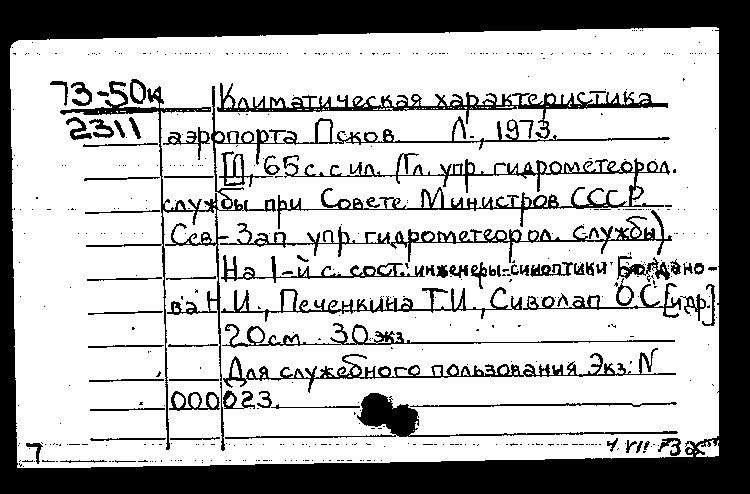 73-50к Климатическая характеристика
2311 аэропорта Псков Л., 1973.
[1], 65 с. с ил. (Гл. упр. гидрометеорол.
службы при Совете Министров СССР.
Сев-Зап упр. гидрометеорол. службы).
На 1-й с. сост.: инженеры-синоптики Богдано-
ва Н.И., Печенкина Т.И., Сиволап О.С [и др.]
20 см. 30 экз.
Для служебного пользования Экз: N
000023.
7 4 VII 73